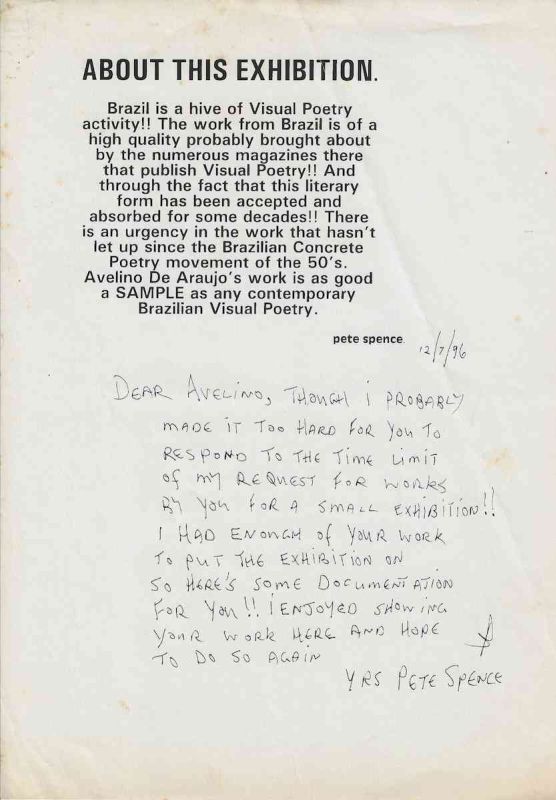 ABOUT THIS EXHIBITION.
Brazil is a hive of Visual Poetry
activity!! The work from Brazil is of a
high quality probably brought about
by the numerous magazines there
that publish Visual Poetry!! And
through the fact that this literary
form has been accepted and
absorbed for some decades!! There
is an urgency in the work that hasn't
let up since the Brazilian Concrete
Poetry movement of the 50's.
Avelino De Araujo's work is as good
a SAMPLE as any contemporary
Brazilian Visual Poetry.
pete spence 12/7/96
DEAR AVELINO, THOUGH I PROBABLY
MADE IT TOO HARD FOR YOU TO
RESPOND TO THE TIME LIMIT
OF MY REQUEST FOR WORKS
BY YOU FOR A SMALL EXHIBITION!!
I HAD ENOUGH OF YOUR WORK
TO PUT THE EXHIBITION ON
SO HERE'S SOME DOCUMENTATION
FOR YOU!! I ENJOYED SHOWING
YOUR WORK HERE AND HOPE
TO DO SO AGAIN
YRS PETE SPENCE